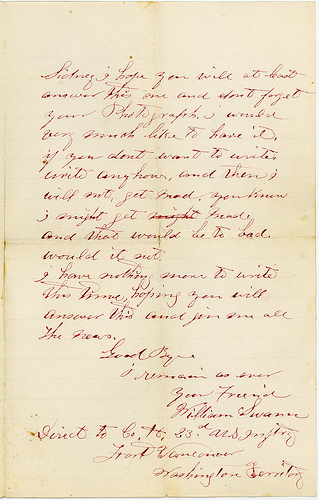 Sidney i hope you will at least
answer this one and dont forget
your Photograph. i would
very much like to have it.
if you dont want to write
write anyhow, and then i
will not, get mad. you know
i might get might mad.
and that would be to bad.
would it not.
i have nothing more to write
this time, hoping you will
answer this and give me all
the news.
Good Bye
i remain as ever
Your Friend
William Swann
Direct to Co. H. 23rd U.S. Inftry
Fort Vancouver
Washington Territory